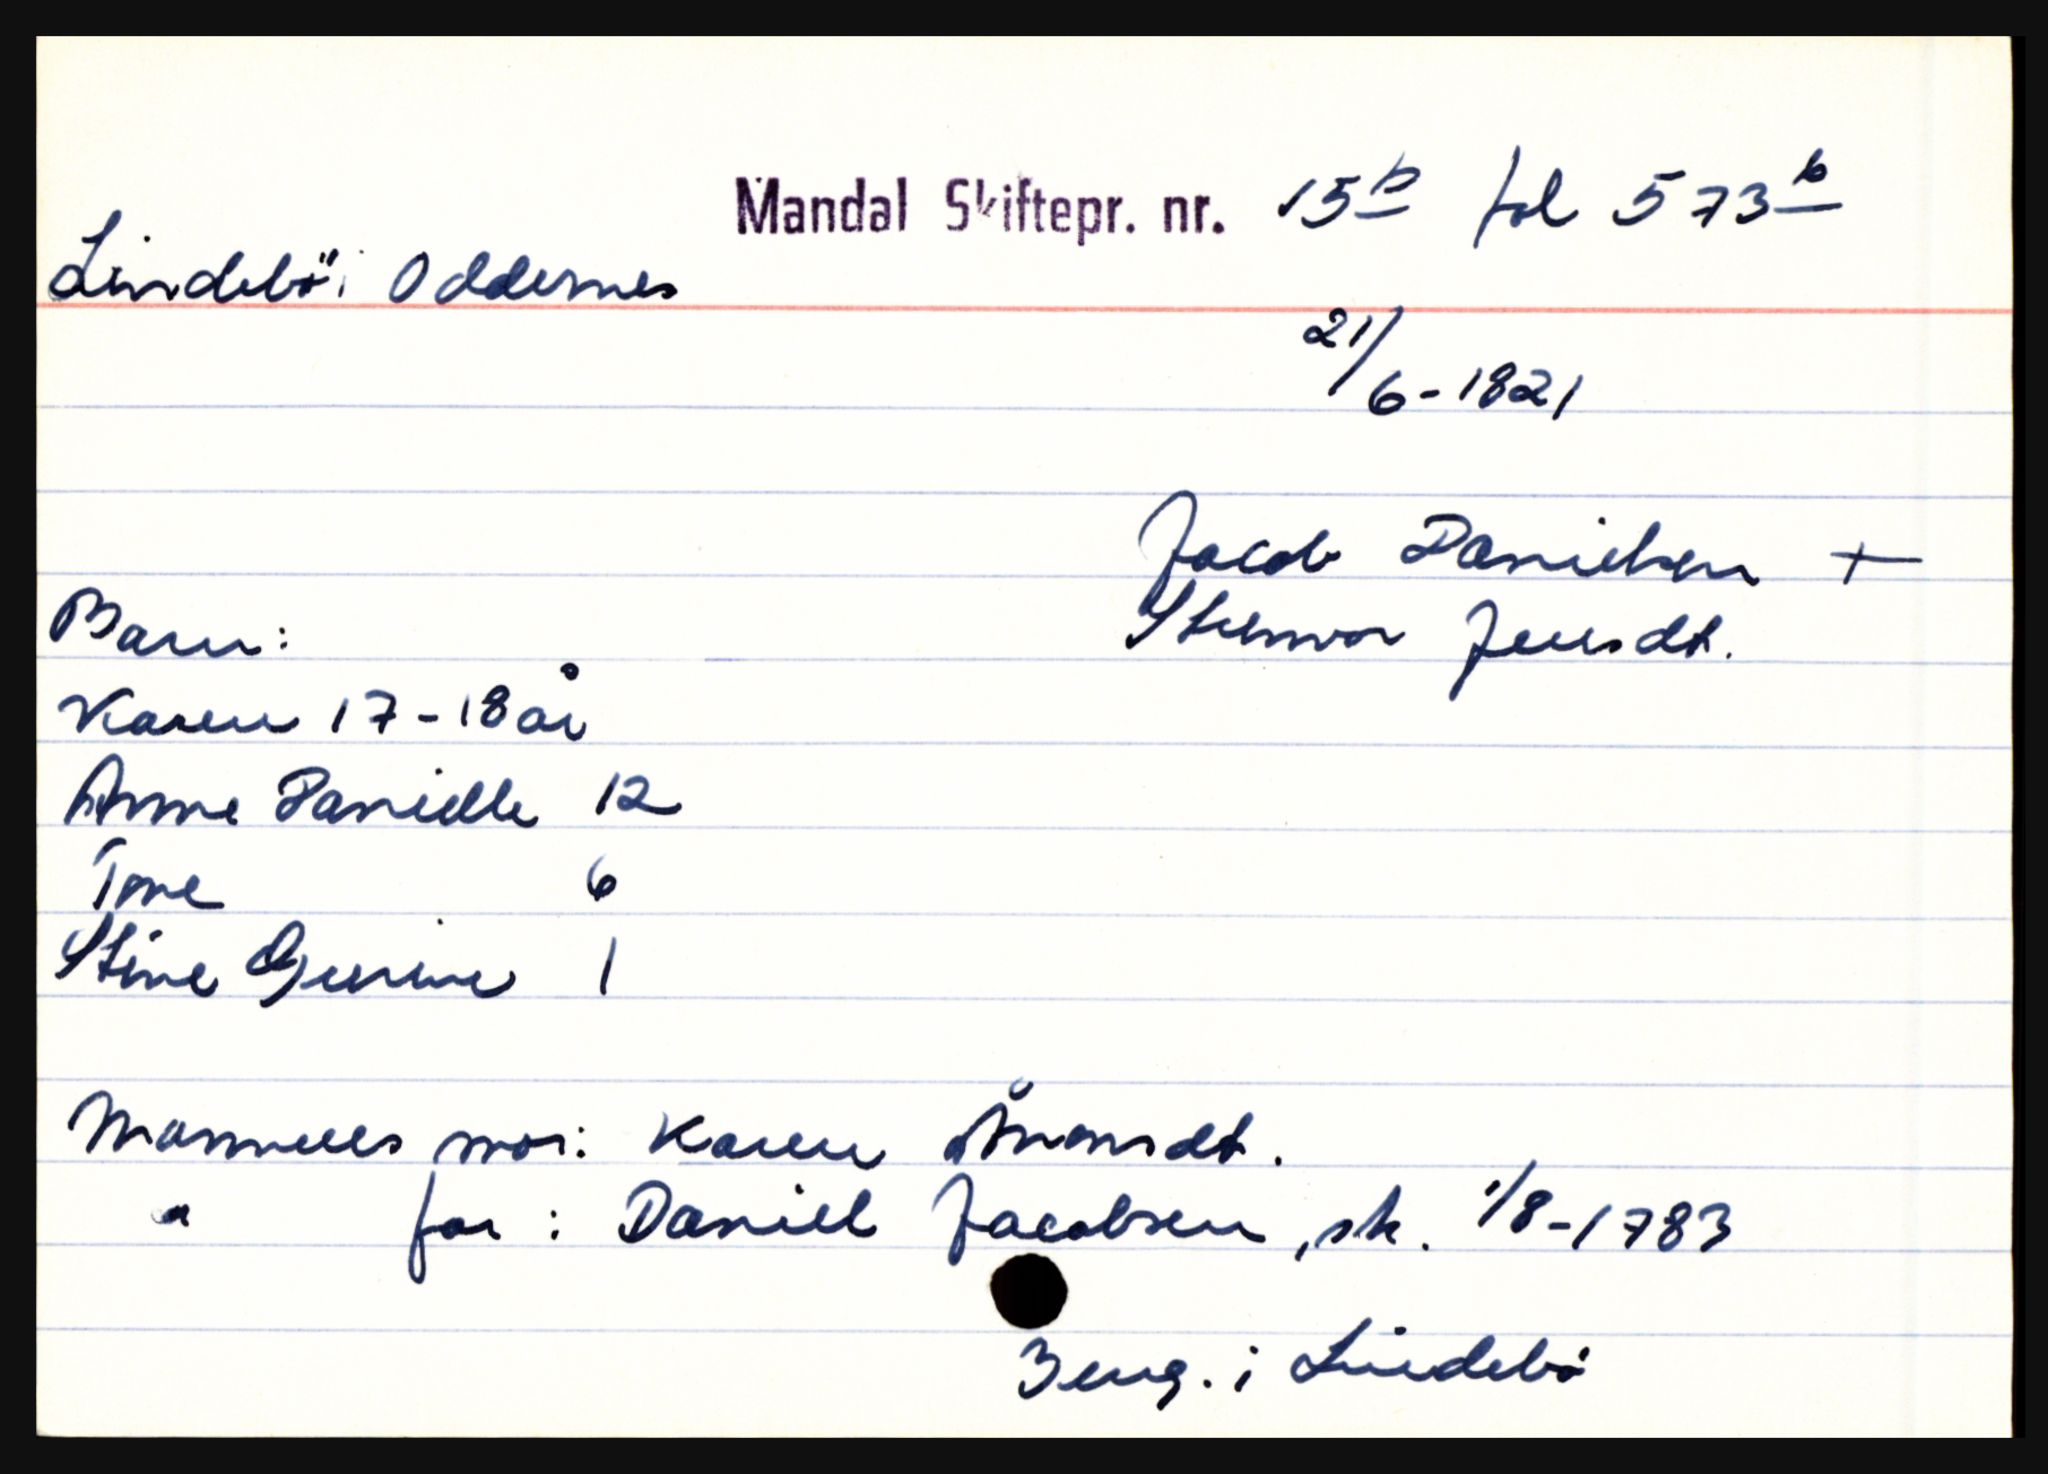 Mandal Skiftepr. nr. 15b fol 573b
Lindebö i Oddernes
21/6-1821
Jacob Danielsen +
Barn:
Stenvor Jensdt.
Karen 17-18 år
Anne Danielle 12
Tone 6
Stine Gurine 1
Mannens mor: Karen Ånonsdt.
" far: Daniel Jacobsen, sk. 1/8-1783
3 eng. i Lindebö